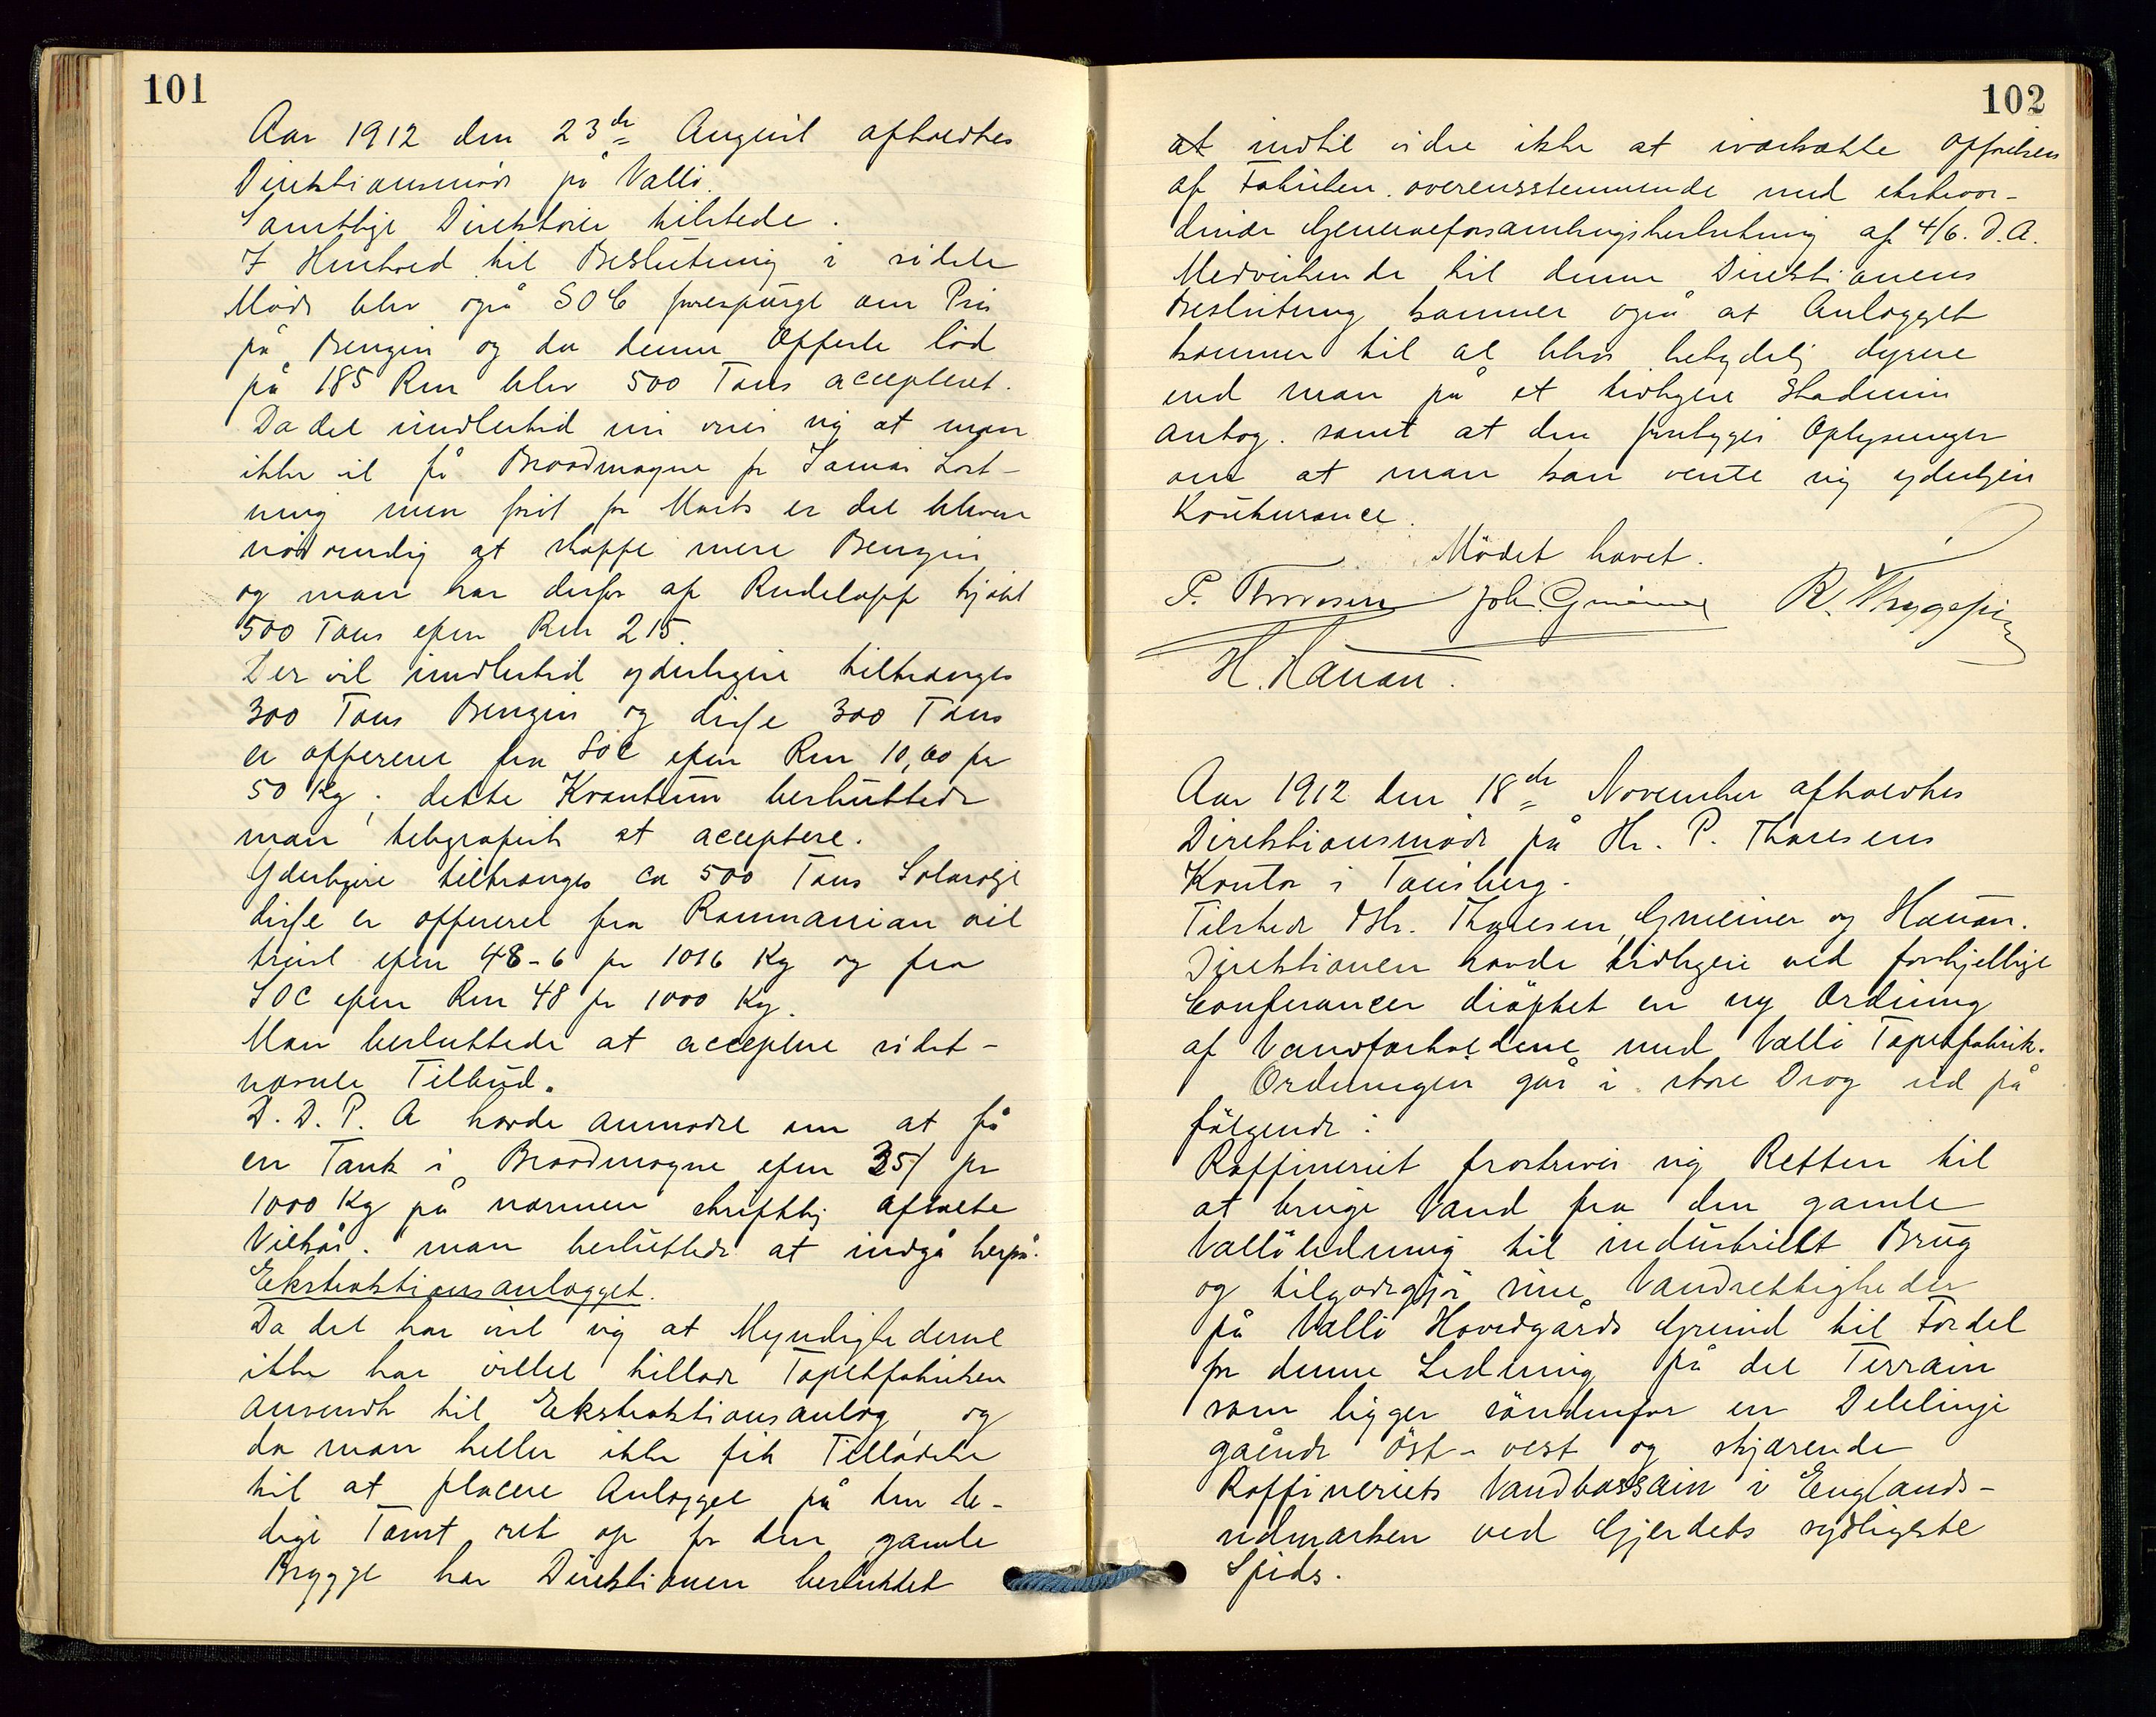 101
Aar 1912 den 23de August afholdtes
Direktionsmöde på Vallö.
Samtlige Direktörer tilstede.
I Henhold til Beslutning i sidste
Möde blev også SOC forespurgt om Pris
på Benzin og da denne Offerte löd
på 185 Rm blev 500 Tons accepteret.
Da det imidlertid nu viser sig at man
ikke vil få Broadmayne for Januar Last-
ning men först for Marts er det bleven
nödvendig at skaffe mere Benzin
og man har derfor af Rudeloff kjöbt
500 Tons efter Rm 215.
Der vil imidlertid yderligere tiltrænges
300 Tons Benzin og disse 300 Tons
er offereret fra SOC efter Rm 10,60 pr
50 Kg; dette Kvantum besluttede
man telegrafisk at acceptere.
Yderligere tiltrænges ca 500 Tons Solarolje
disse er offereret fra Roumanian oil
trust efter 48-6 pr 1016 Kg og fra
SOC efter Rm 48 pr 1000 Kg.
Man besluttede at acceptere sidst-
nævnte Tilbud.
D. D. P. A havde anmodet om at få
en Tank i Broadmayne efter 35/ pr
1000 Kg på nærmere skriftlig aftalte
Vilkår. man besluttede at indgå herpå.
Ekstraktionsanlægget.
Da det har vist sig at Myndighederne
ikke har villet tillade Tapetfabriken
anvendt til Ekstraktionsanlæg og
da man heller ikke fik Tilladelse
til at placere Anlægget på den le-
dige Tomt ret op for den gamle
Brygge har Direktionen besluttet
102
at indtil videre ikke at iværksætte opförelsen
af Fabriken overensstemmende med ekstraor-
dinær Generalforsamlingsbeslutning af 4/6. D.A.
Medvirkende til denne Direktionens
Beslutning kommer også at Anlægget
kommer til at blive betydelig dyrere
end man på et tidligere Stadium
antog. samt at den foreligger Oplysninger
om at man kan vente sig yderligere
Konkurance.
Mödet hævet.
P. Thoresen Joh. Gmeiner R. Thygesen
H. Hauan.
Aar 1912 den 18de November afholdtes
Direktionsmöde på Hr. P. Thoresens
Kontor i Tönsberg.
Tilstede DHr. Thoresen, Gmeiner og Hauan.
Direktionen havde tidligere ved forskjellige
Conferancer dröftet en ny Ordning
af Vandforholdene med Vallö Tapetfabrik.
Ordningen går i store Drag ud på
fölgende:
Raffineriet fraskriver sig Retten til
at bruge Vand fra den gamle
Vallöledning til industrielt Brug
og tilgodegjör sine Vandrettigheder
på Vallö Hovedgårds Grund til Fordel
for denne Ledning på det Terrain
som ligger söndenfor en Delelinje
gående öst-vest og skjærende
Raffineriets Vandbassain i Englands-
udmarken ved Gjerdets sydligste
Spids.